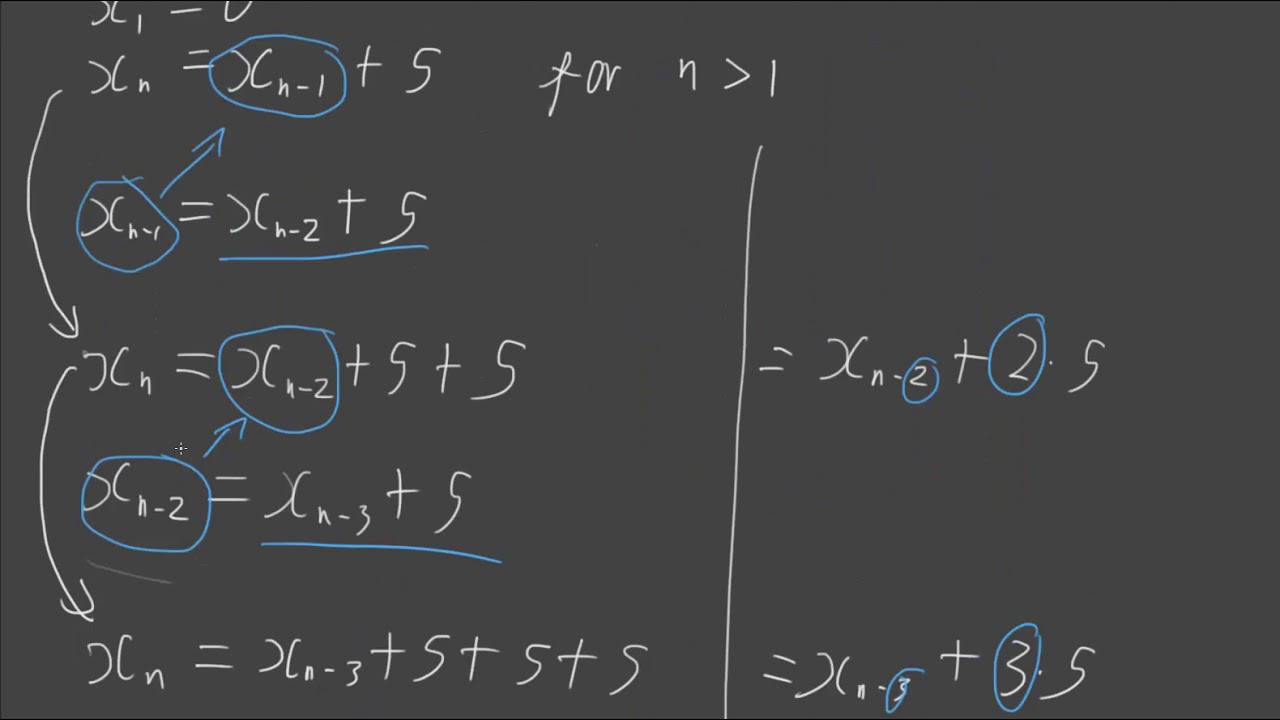 x₁ = 0
xₙ = xₙ₋₁ + 5 for n > 1
xₙ₋₁ = xₙ₋₂ + 5
xₙ = xₙ₋₂ + 5 + 5 = xₙ₋₂ + 2 · 5
xₙ₋₂ = xₙ₋₃ + 5
xₙ = xₙ₋₃ + 5 + 5 + 5 = xₙ₋₃ + 3 · 5